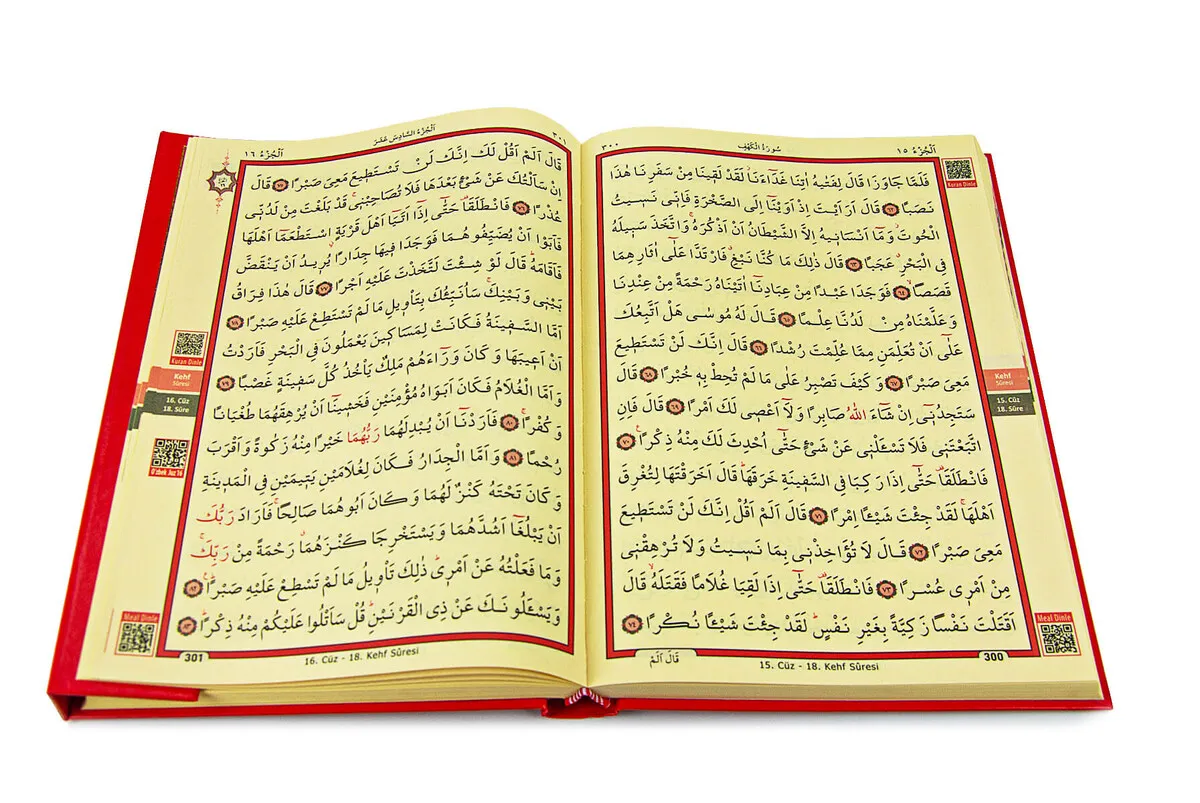 ٣٠٠ سُورَةُ الْكَهْفِ اَلْجُزْءُ ١٥
فَلَمَّا جَاوَزَا قَالَ لِفَتٰيهُ اٰتِنَا غَدَٓاءَنَاۘ لَقَدْ لَقٖينَا مِنْ سَفَرِنَا هٰذَا
نَصَبًا ﴿٦٢﴾ قَالَ اَرَاَيْتَ اِذْ اَوَيْنَٓا اِلَى الصَّخْرَةِ فَاِنّٖى نَسٖيتُ
الْحُوتَۘ وَمَٓا اَنْسَانٖيهُ اِلَّا الشَّيْطَانُ اَنْ اَذْكُرَهُۚ وَاتَّخَذَ سَبٖيلَهُ
فِى الْبَحْرِۗ عَجَبًا ﴿٦٣﴾ قَالَ ذٰلِكَ مَا كُنَّا نَبْغِۗ فَارْتَدَّا عَلٰٓى اٰثَارِهِمَا
قَصَصًاۙ ﴿٦٤﴾ فَوَجَدَا عَبْدًا مِنْ عِبَادِنَٓا اٰتَيْنَاهُ رَحْمَةً مِنْ عِنْدِنَا
وَعَلَّمْنَاهُ مِنْ لَدُنَّا عِلْمًا ﴿٦٥﴾ قَالَ لَهُ مُوسٰى هَلْ اَتَّبِعُكَ
عَلٰٓى اَنْ تُعَلِّمَنِ مِمَّا عُلِّمْتَ رُشْدًا ﴿٦٦﴾ قَالَ اِنَّكَ لَنْ تَسْتَطٖيعَ
مَعِىَ صَبْرًا ﴿٦٧﴾ وَكَيْفَ تَصْبِرُ عَلٰى مَا لَمْ تُحِطْ بِهٖ خُبْرًا ﴿٦٨﴾ قَالَ
سَتَجِدُنٖٓى اِنْ شَٓاءَ اللّٰهُ صَابِرًا وَلَٓا اَعْصٖى لَكَ اَمْرًا ﴿٦٩﴾ قَالَ فَاِنِ
اتَّبَعْتَنٖى فَلَا تَسْـَٔلْنٖى عَنْ شَىْءٍ حَتّٰٓى اُحْدِثَ لَكَ مِنْهُ ذِكْرًاۚ ﴿٧٠﴾
فَانْطَلَقَا۠ حَتّٰٓى اِذَا رَكِبَا فِى السَّفٖينَةِ خَرَقَهَاۜ قَالَ اَخَرَقْتَهَا لِتُغْرِقَ
اَهْلَهَاۚ لَقَدْ جِئْتَ شَيْـًٔا اِمْرًا ﴿٧١﴾ قَالَ اَلَمْ اَقُلْ اِنَّكَ لَنْ تَسْتَطٖيعَ
مَعِىَ صَبْرًا ﴿٧٢﴾ قَالَ لَا تُؤَاخِذْنٖى بِمَا نَسٖيتُ وَلَا تُرْهِقْنٖى
مِنْ اَمْرٖى عُسْرًا ﴿٧٣﴾ فَانْطَلَقَا۠ حَتّٰٓى اِذَا لَقِيَا غُلَامًا فَقَتَلَهُۙ قَالَ
اَقَتَلْتَ نَفْسًا زَكِيَّةً بِغَيْرِ نَفْسٍۜ لَقَدْ جِئْتَ شَيْـًٔا نُكْرًا ﴿٧٤﴾
قَالَ اَلَمْ
15. Cüz - 18. Kehf Sûresi
300
Kuran Dinle
Kehf
Sûresi
15. Cüz
18. Sûre
Meal Dinle
٣٠١ اَلْجُزْءُ السَّادِسَ عَشَرَ اَلْجُزْءُ ١٦
قَالَ اَلَمْ اَقُلْ لَكَ اِنَّكَ لَنْ تَسْتَطٖيعَ مَعِىَ صَبْرًا ﴿٧٥﴾ قَالَ
اِنْ سَاَلْتُكَ عَنْ شَىْءٍ بَعْدَهَا فَلَا تُصَاحِبْنٖىۚ قَدْ بَلَغْتَ مِنْ لَدُنّٖى
عُذْرًا ﴿٧٦﴾ فَانْطَلَقَا۠ حَتّٰٓى اِذَٓا اَتَيَٓا اَهْلَ قَرْيَةٍۨ اسْتَطْعَمَٓا اَهْلَهَا
فَاَبَوْا اَنْ يُضَيِّفُوهُمَا فَوَجَدَا فٖيهَا جِدَارًا يُرٖيدُ اَنْ يَنْقَضَّ
فَاَقَامَهُۜ قَالَ لَوْ شِئْتَ لَتَّخَذْتَ عَلَيْهِ اَجْرًا ﴿٧٧﴾ قَالَ هٰذَا فِرَاقُ
بَيْنٖى وَبَيْنِكَۚ سَاُنَبِّئُكَ بِتَاْوٖيلِ مَا لَمْ تَسْتَطِعْ عَلَيْهِ صَبْرًا ﴿٧٨﴾
اَمَّا السَّفٖينَةُ فَكَانَتْ لِمَسَاكٖينَ يَعْمَلُونَ فِى الْبَحْرِ فَاَرَدْتُ
اَنْ اَعٖيبَهَا وَكَانَ وَرَٓاءَهُمْ مَلِكٌ يَاْخُذُ كُلَّ سَفٖينَةٍ غَصْبًا ﴿٧٩﴾
وَاَمَّا الْغُلَامُ فَكَانَ اَبَوَاهُ مُؤْمِنَيْنِ فَخَشٖينَٓا اَنْ يُرْهِقَهُمَا طُغْيَانًا
وَكُفْرًاۚ ﴿٨٠﴾ فَاَرَدْنَٓا اَنْ يُبْدِلَهُمَا رَبُّهُمَا خَيْرًا مِنْهُ زَكٰوةً وَاَقْرَبَ
رُحْمًا ﴿٨١﴾ وَاَمَّا الْجِدَارُ فَكَانَ لِغُلَامَيْنِ يَتٖيمَيْنِ فِى الْمَدٖينَةِ
وَكَانَ تَحْتَهُ كَنْزٌ لَهُمَا وَكَانَ اَبُوهُمَا صَالِحًاۚ فَاَرَادَ رَبُّكَ
اَنْ يَبْلُغَٓا اَشُدَّهُمَا وَيَسْتَخْرِجَا كَنْزَهُمَاۗ رَحْمَةً مِنْ رَبِّكَۚ
وَمَا فَعَلْتُهُ عَنْ اَمْرٖىۜ ذٰلِكَ تَاْوٖيلُ مَا لَمْ تَسْطِعْ عَلَيْهِ صَبْرًاۜ ﴿٨٢﴾
وَيَسْـَٔلُونَكَ عَنْ ذِى الْقَرْنَيْنِۜ قُلْ سَاَتْلُوا عَلَيْكُمْ مِنْهُ ذِكْرًاۜ ﴿٨٣﴾
16. Cüz - 18. Kehf Sûresi
301
Kuran Dinle
Kehf
Sûresi
16. Cüz
18. Sûre
Meal Dinle